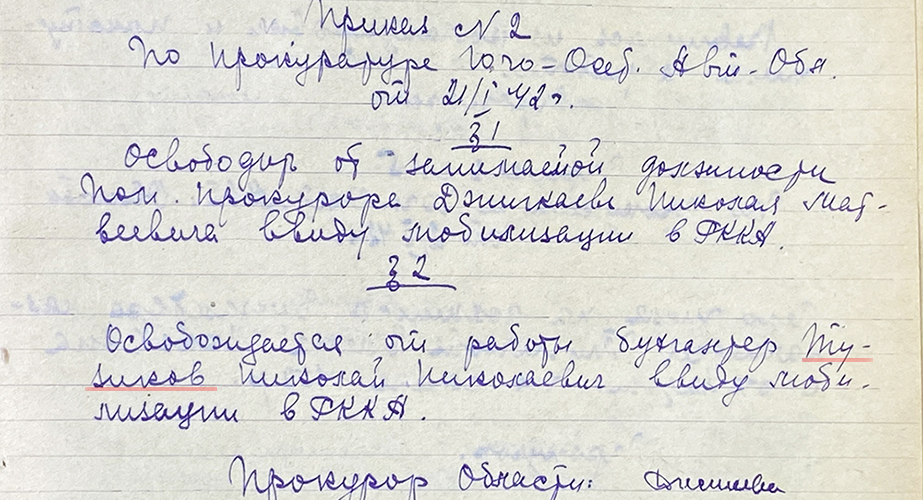 Приказ № 2
По прокуратуре Юго-Осет. Авт. Обл.
от 21/I 42 г.
§ 1
Освободить от занимаемой должности
Пом. прокурора Джиккаева Николая Мат-
веевича ввиду мобилизации в РККА.
§ 2
Освобождается от работы бухгалтер Ту-
зиков Николай Николаевич ввиду моби-
лизации в РККА.
Прокурор Области: